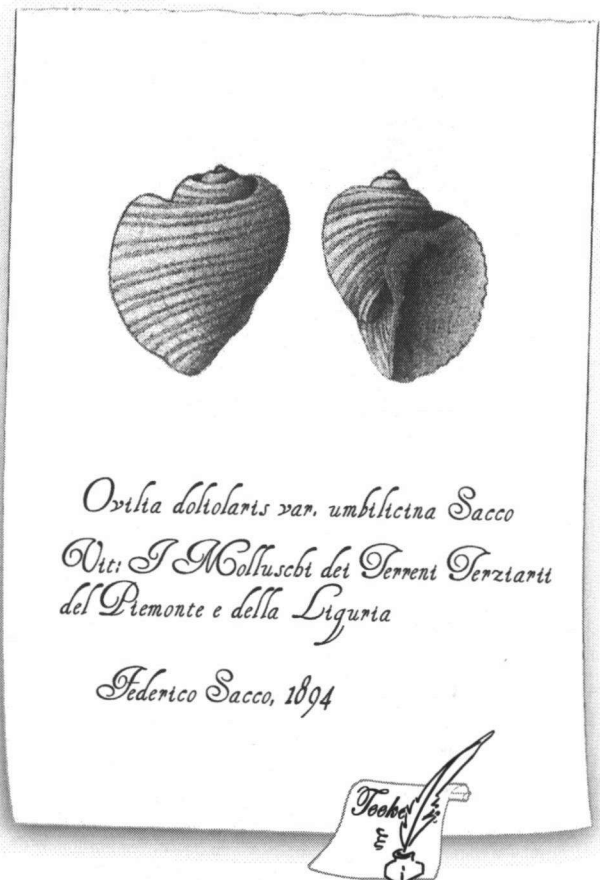 Ovilia doliolaris var. umbilicina Sacco
Uit: I Molluschi dei Terreni Terziarii
del Piemonte e della Liguria
Federico Sacco, 1894